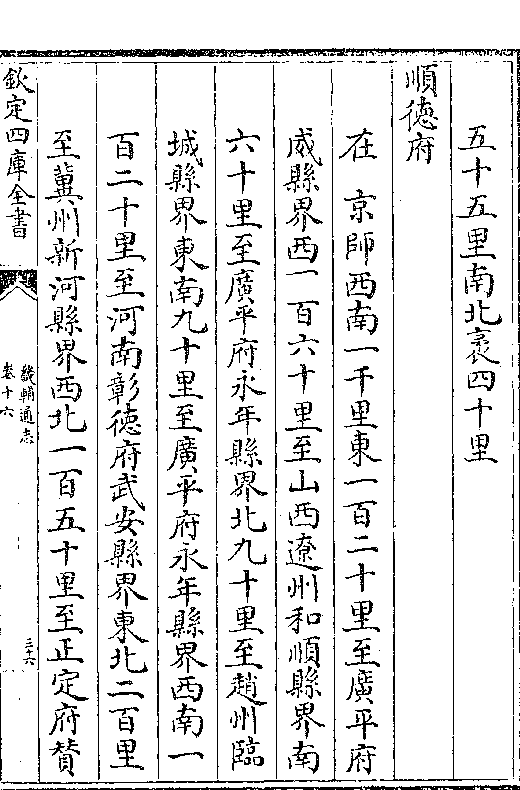 五十五里南北袤四十里
順徳府
在 京師西南一千里東一百二十里至廣平府
威縣界西一百六十里至山西遼州和順縣界南
六十里至廣平府永年縣界北九十里至趙州臨
城縣界東南九十里至廣平府永年縣界西南一
百二十里至河南彰徳府武安縣界東北二百里
至冀州新河縣界西北一百五十里至正定府贊
欽定四庫全書
畿輔通志
卷十六
三十六